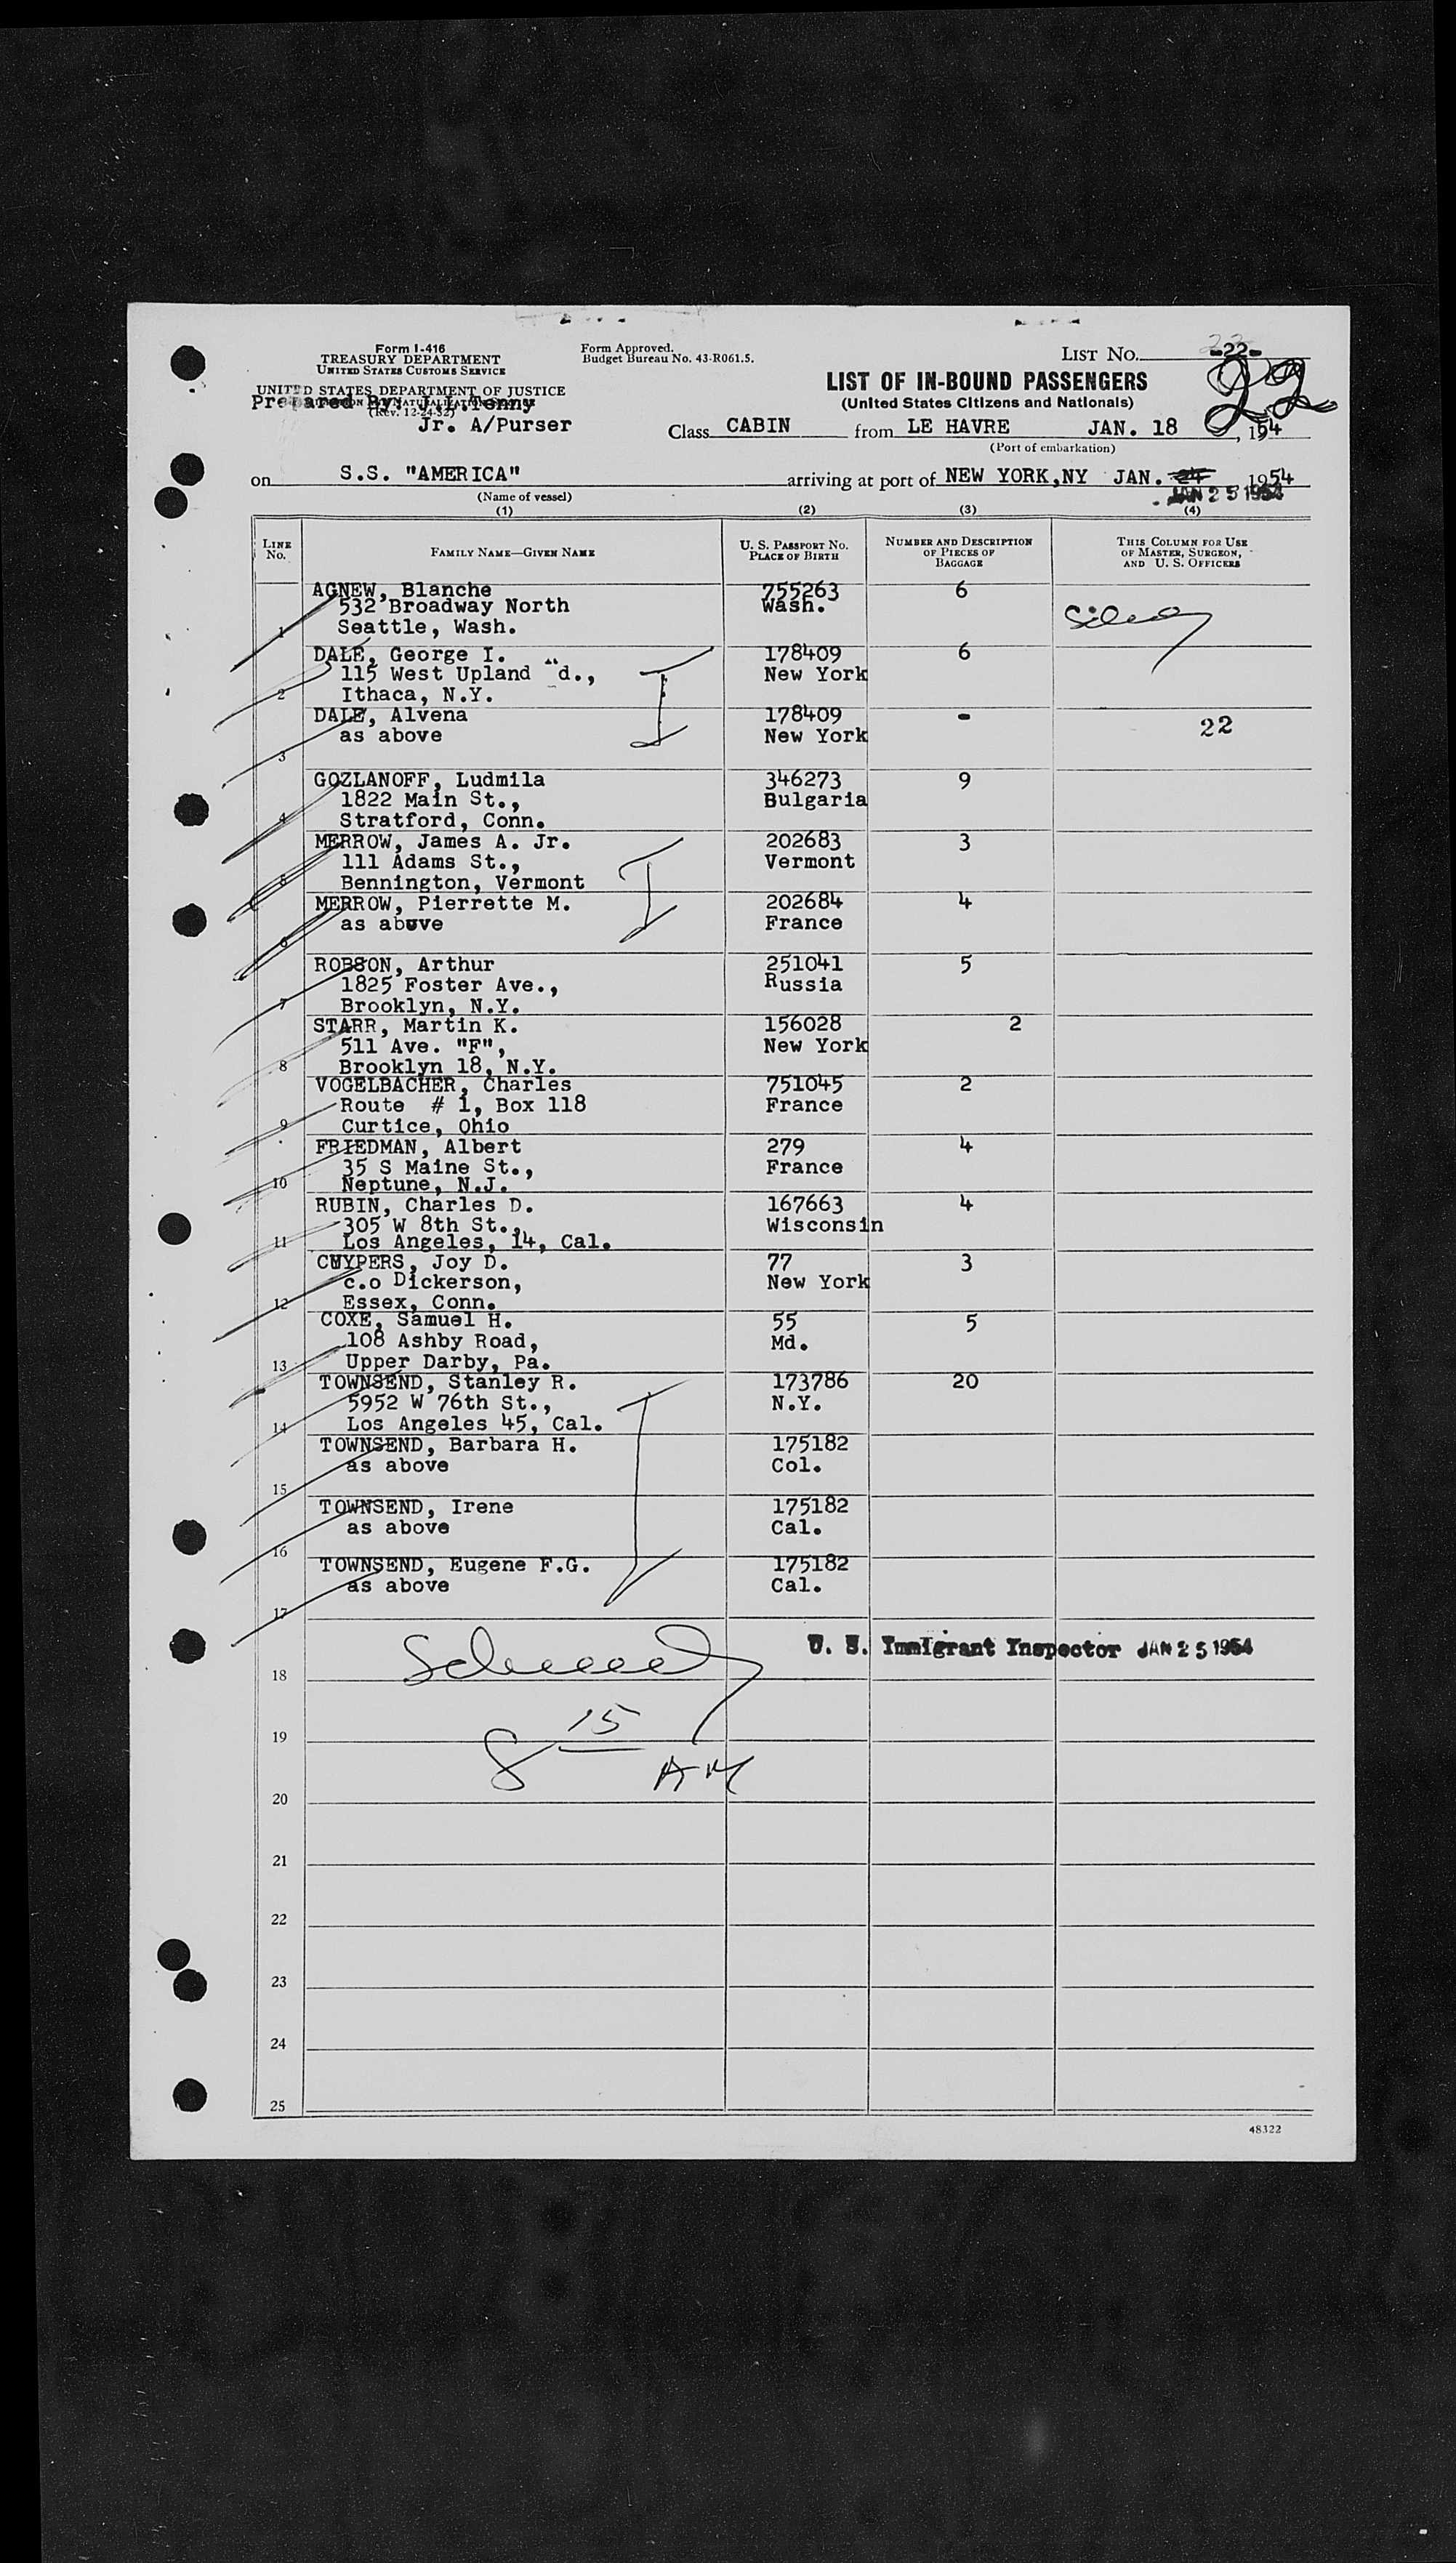 Form I-416
TREASURY DEPARTMENT
UNITED STATES CUSTOMS SERVICE
UNITED STATES DEPARTMENT OF JUSTICE
(Rev. 12-24-52)
Prepared By: J.J.Tenny
Jr. A/Purser
Form Approved.
Budget Bureau No. 43-R061.5.
LIST NO. -22-
22
LIST OF IN-BOUND PASSENGERS
(United States Citizens and Nationals)
Class CABIN from LE HAVRE JAN. 18, 1954
(Port of embarkation)
on S.S. "AMERICA" arriving at port of NEW YORK,NY JAN. 24 1954
JAN 25 1954
(Name of vessel)
(1) (2) (3) (4)
LINE No. FAMILY NAME—GIVEN NAME U. S. PASSPORT NO. PLACE OF BIRTH NUMBER AND DESCRIPTION OF PIECES OF BAGGAGE THIS COLUMN FOR USE OF MASTER, SURGEON, AND U. S. OFFICERS
AGNEW, Blanche 755263 6
532 Broadway North Wash.
1 Seattle, Wash.
DALE, George I. 178409 6
115 West Upland d., New York
2 Ithaca, N.Y.
DALE, Alvena 178409 - 22
as above New York
3
GOZLANOFF, Ludmila 346273 9
1822 Main St., Bulgaria
4 Stratford, Conn.
MERROW, James A. Jr. 202683 3
111 Adams St., Vermont
5 Bennington, Vermont
MERROW, Pierrette M. 202684 4
as above France
6
ROBSON, Arthur 251041 5
1825 Foster Ave., Russia
7 Brooklyn, N.Y.
STARR, Martin K. 156028 2
511 Ave. "F", New York
8 Brooklyn 18, N.Y.
VOGELBACHER, Charles 751045 2
Route # 1, Box 118 France
9 Curtice, Ohio
FRIEDMAN, Albert 279 4
35 S Maine St., France
10 Neptune, N.J.
RUBIN, Charles D. 167663 4
305 W 8th St., Wisconsin
11 Los Angeles, 14, Cal.
CUYPERS, Joy D. 77 3
c.o Dickerson, New York
12 Essex, Conn.
COXE, Samuel H. 55 5
108 Ashby Road, Md.
13 Upper Darby, Pa.
TOWNSEND, Stanley R. 173786 20
5952 W 76th St., N.Y.
14 Los Angeles 45, Cal.
TOWNSEND, Barbara H. 175182
as above Col.
15
TOWNSEND, Irene 175182
as above Cal.
16
TOWNSEND, Eugene F.G. 175182
as above Cal.
17
U. S. Immigrant Inspector JAN 25 1954
18
8 15 AM
19
20
21
22
23
24
25
48322